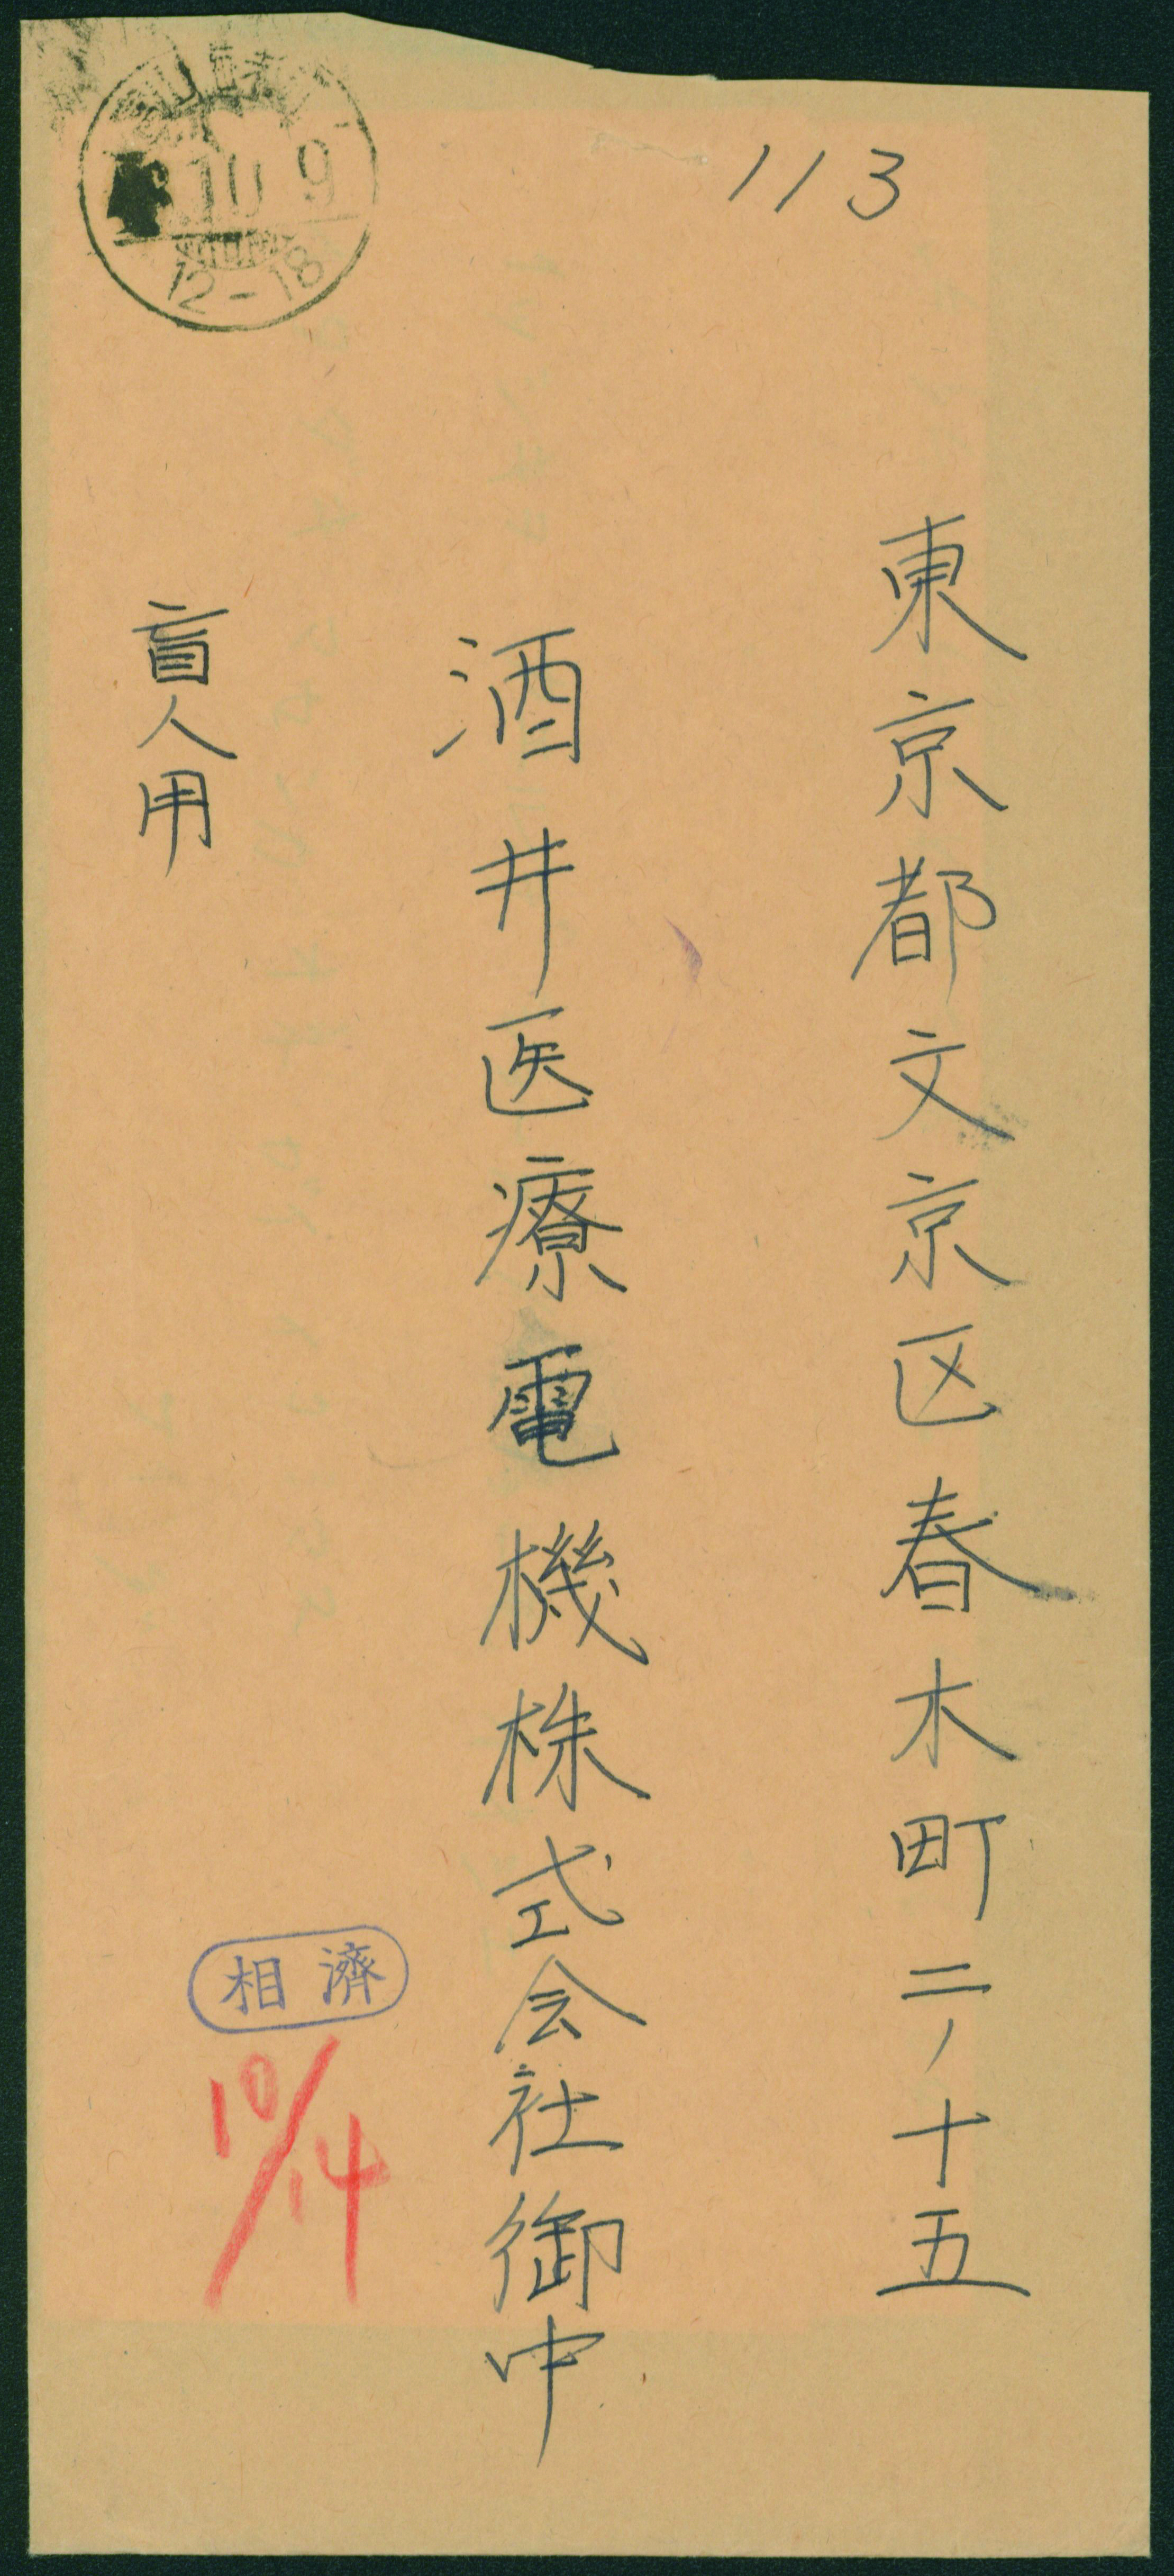 113
東京都文京区春木町二ノ十五
酒井医療電機株式会社御中
盲人用
10 9
12-18
相済
10/14